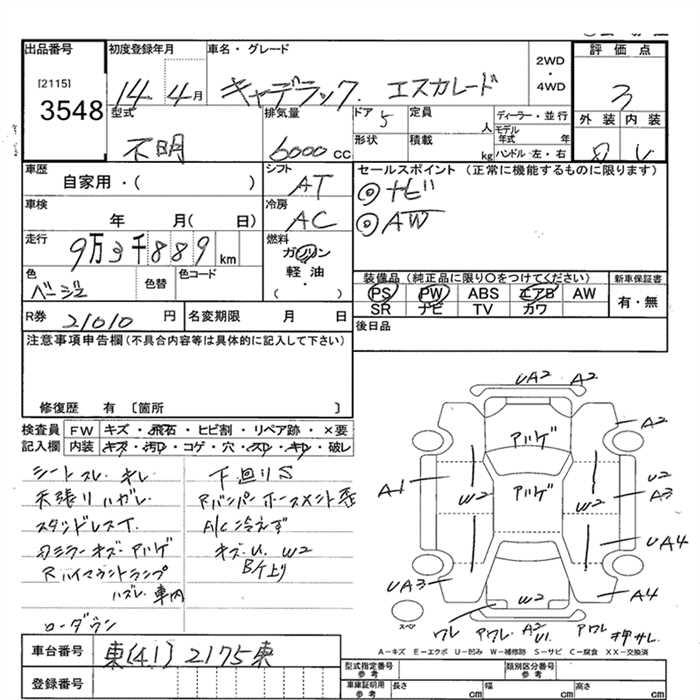 出品番号 初度登録年月 車名・グレード 2WD ・ 4WD 評価点
[2115]
3548
14 4月 キャデラック. エスカレード 3
型式 排気量 ドア 5 定員 人 ディーラー・並行 外装 内装
不明 6000cc 形状 積載 kg モデル年式 年 ハンドル 左・右
車歴 シフト セールスポイント (正常に機能するものに限ります)
自家用・( ) AT ◎ナビ
車検 冷房 ◎AW
年 月( 日) AC
走行 9万3千889km 燃料
ガソリン
軽油
( )
色 色替 色コード
ベージュ
装備品 (純正品に限り○をつけてください) 新車保証書
PS PW ABS エアB AW 有・無
SR ナビ TV カワ
R券 21010円 名変期限 月 日
後日品
注意事項申告欄(不具合内容等は具体的に記入して下さい)
修復歴 有 [箇所 ]
検査員 FW キズ・飛石・ヒビ割・リペア跡・×要
記入欄 内装 キズ・汚れ・コゲ・穴・スレ・キレ・破レ
シートスレ. キレ 下廻りS
天張りハガレ.
スタッドレスT. A/C冷えず
キズ・U. W2
Rハイマウントランプ B仕上り
ハズレ. 車内
ローダウン
UA2 A2
アハゲ A2
アハゲ
A1 W2 W2 U2
A3
UA4
UA3 A4
W2
スペア ワレ アワレ A2 U1 アワレ
A-キズ E-エクボ U-凹み W-補修跡 S-サビ C-腐食 XX-交換済
車台番号 東[41]2175東
登録番号
型式指定番号 参考 類別区分番号 参考
車庫証明用 参考 長さ cm 幅 cm 高さ cm